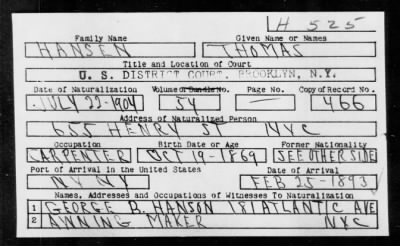 H 525
Family Name Given Name or Names
HANSEN THOMAS
Title and Location of Court
U. S. DISTRICT COURT, BROOKLYN, N.Y.
Date of Naturalization Volume or Bundle No. Page No. Copy of Record No.
JULY 22-1904 54 — 466
Address of Naturalized Person
655 HENRY ST NYC
Occupation Birth Date or Age Former Nationality
CARPENTER OCT 19-1869 SEE OTHER SIDE
Port of Arrival in the United States Date of Arrival
NY NY FEB 25-1893
Names, Addresses and Occupations of Witnesses To Naturalization
1 GEORGE B. HANSON 181 ATLANTIC AVE
2 AWNING MAKER NYC